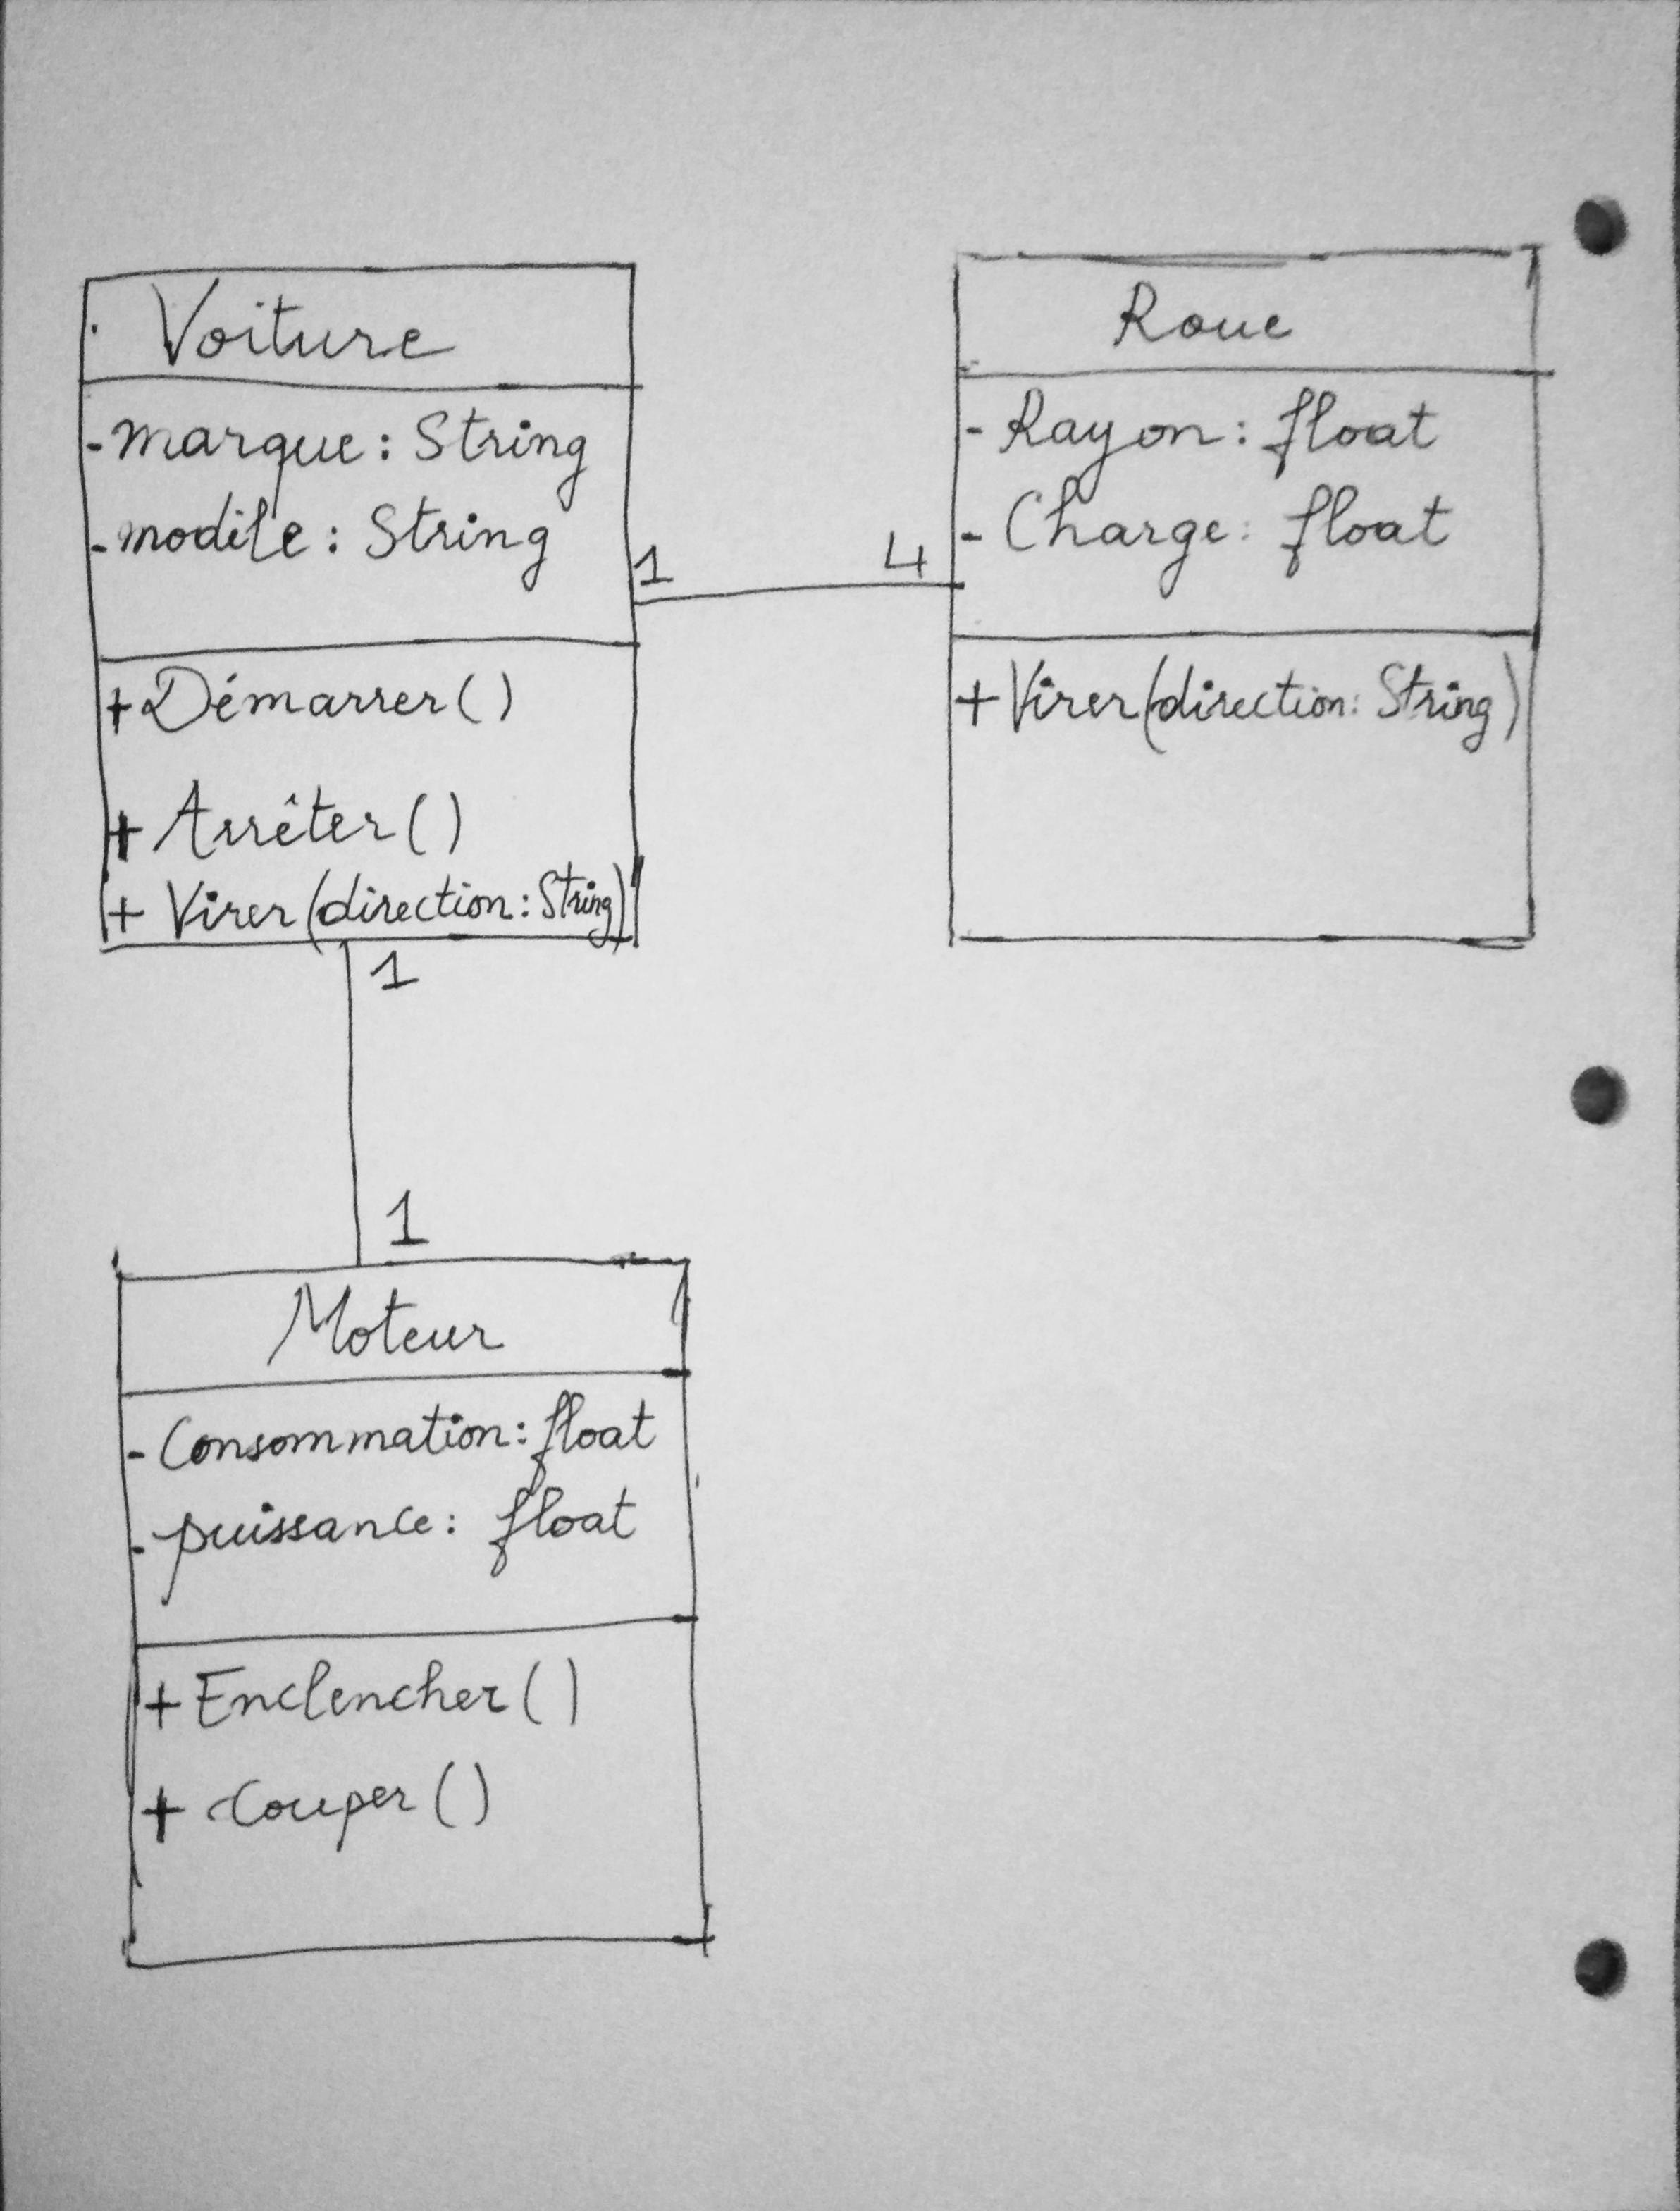 Voiture
- marque : String
- modile : String
+ Démarrer ()
+ Arrêter ()
+ Virer (direction : String)
1
4
Roue
- Rayon : float
- Charge : float
+ Virer (direction : String)
1
1
Moteur
- Consommation : float
- puissance : float
+ Enclencher ()
+ Couper ()